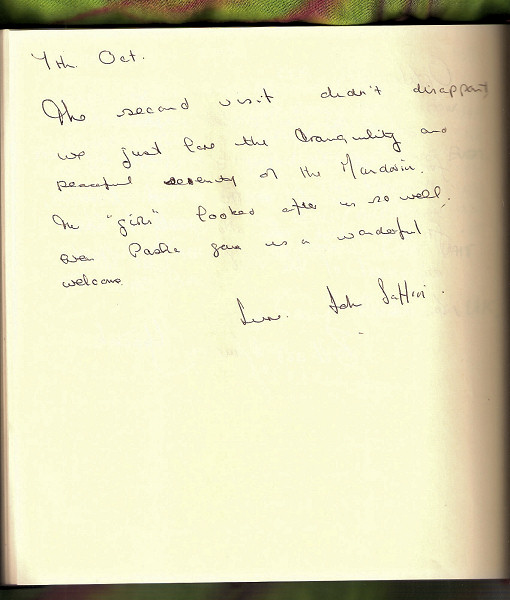 7th. Oct.
The second visit didn't disappoint
we just love the tranquility and
peaceful serenity of the Mandarin.
The "girls" looked after us so well,
even Pasha gave us a wonderful
welcome.